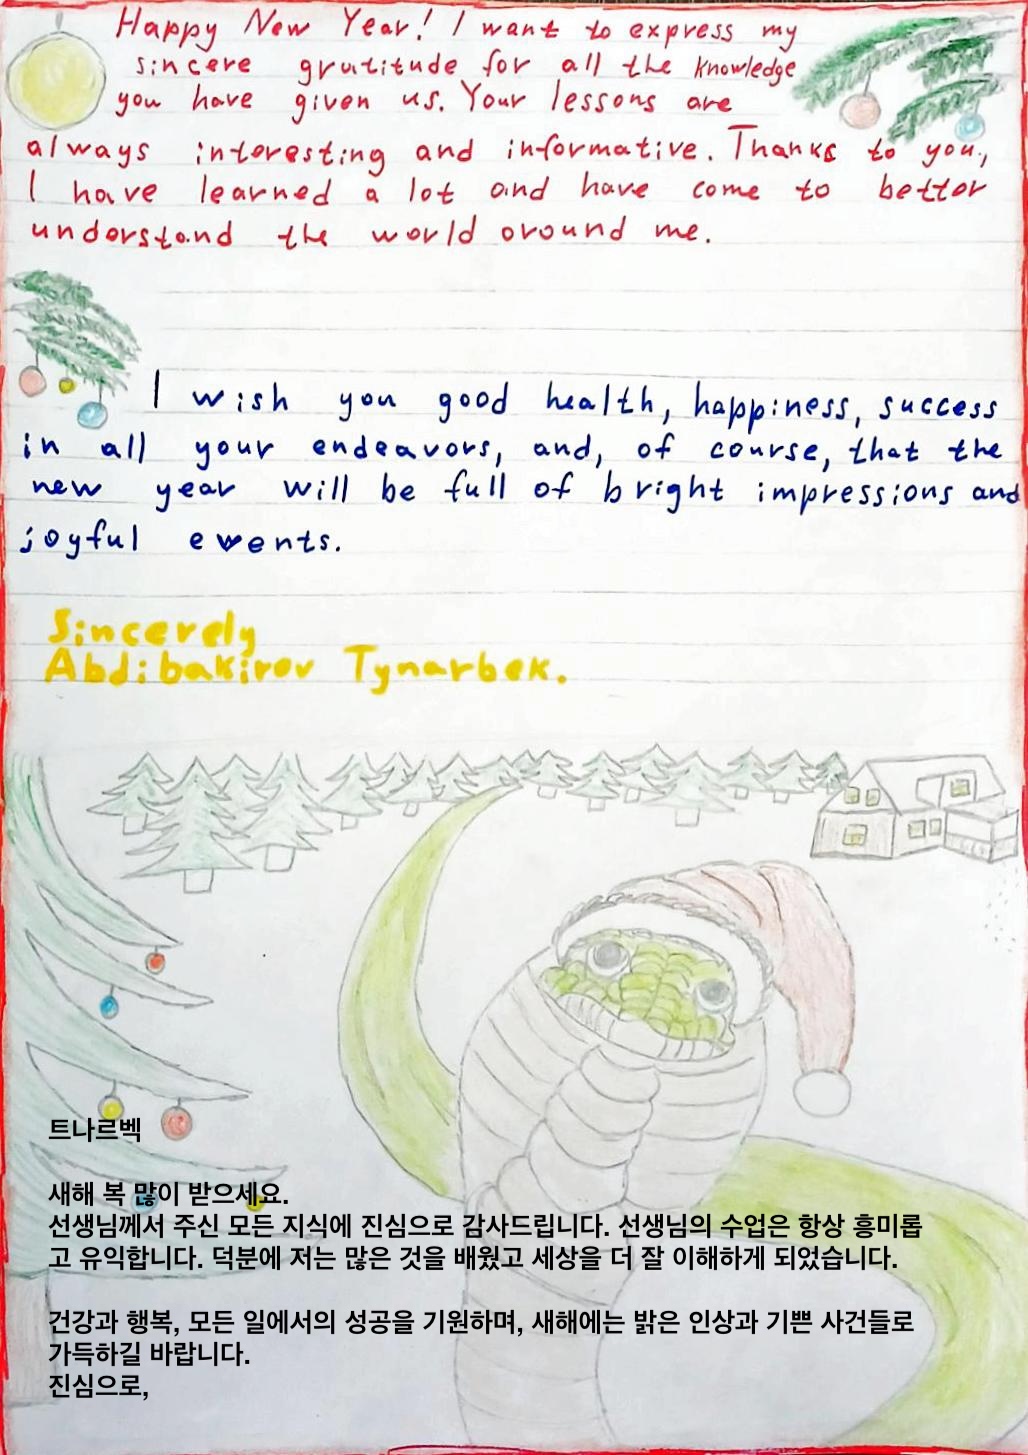 Happy New Year! I want to express my
sincere gratitude for all the knowledge
you have given us. Your lessons are
always interesting and informative. Thanks to you,
I have learned a lot and have come to better
understand the world around me.
I wish you good health, happiness, success
in all your endeavors, and, of course, that the
new year will be full of bright impressions and
joyful events.
Sincerely
Abdibakirov Tynarbek.
트나르벡
새해 복 많이 받으세요.
선생님께서 주신 모든 지식에 진심으로 감사드립니다. 선생님의 수업은 항상 흥미롭
고 유익합니다. 덕분에 저는 많은 것을 배웠고 세상을 더 잘 이해하게 되었습니다.
건강과 행복, 모든 일에서의 성공을 기원하며, 새해에는 밝은 인상과 기쁜 사건들로
가득하길 바랍니다.
진심으로,